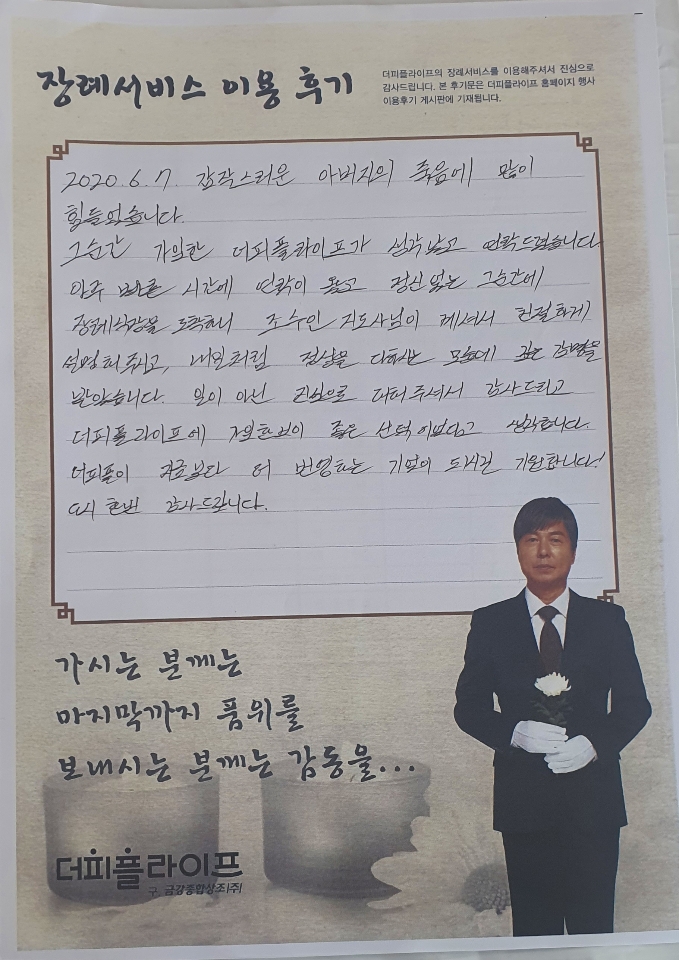 장례서비스 이용 후기
더피플라이프의 장례서비스를 이용해주셔서 진심으로
감사드립니다. 본 후기문은 더피플라이프 홈페이지 행사
이용후기 게시판에 기재됩니다.
2020. 6. 7. 갑작스러운 아버지의 죽음에 많이
힘들었습니다.
그순간 가입한 더피플라이프가 생각났고 연락드렸습니다.
아주 빠른 시간에 연락이 왔고 정신 없는 그순간에
장례식장을 도착하니 조수인 지도사님이 계셔서 친절하게
설명해주시고, 내일처럼 정성을 다하시는 모습에 깊은 감명을
받았습니다. 일이 아닌 진심으로 대해주셔서 감사드리고
더피플라이프에 가입한것이 좋은 선택이었다고 생각합니다.
더피플이 지금보다 더 번영하는 기업이 되시길 기원합니다!
다시 한번 감사드립니다.
가시는 분께는
마지막까지 품위를
보내시는 분께는 감동을...
더피플라이프
구. 금강종합상조(주)